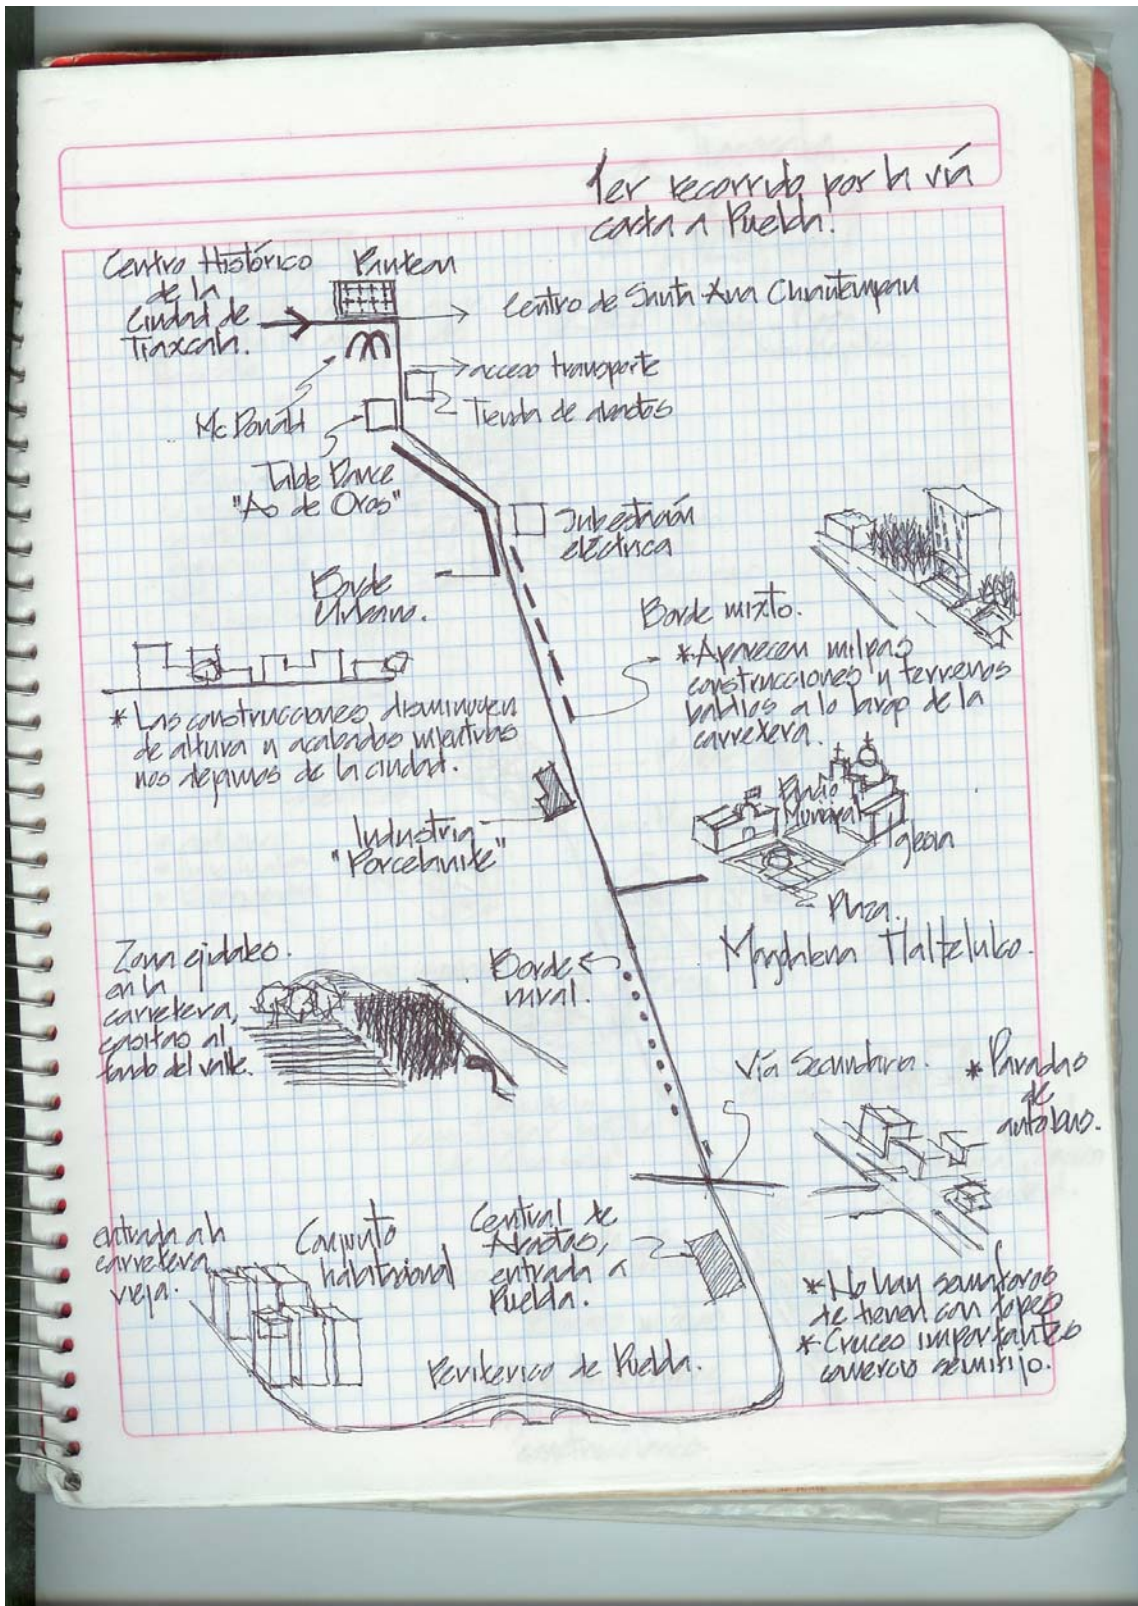 1er recorrido por la vía
corta a Puebla.
Centro Histórico
de la
Ciudad de
Tlaxcala.
Panteon
Centro de Santa Ana Chiautempan
acceso transporte
Tienda de abastos
Mc Donald
Table Dance
"As de Oros"
Subestación
eléctrica
Borde
Urbano.
Borde mixto.
*Aparecen milpas
construcciones y terrenos
baldios a lo largo de la
carretera.
* Las construcciones disminuyen
de altura y acabados mientras
nos alejamos de la ciudad.
Industria
"Porcelanite"
Palacio
Municipal
Iglesia
Plaza.
Magdalena Tlaltelulco.
Zona ejidales.
en la
carretera,
casitas al
fondo del valle.
Borde
rural.
Vía Secundaria.
* Paradas
de
autobus.
entrada a la
carretera
vieja.
Conjunto
habitacional
Central de
Abastos,
entrada a
Puebla.
Periferico de Puebla.
*No hay semaforos
se tienen con topes
*Cruces importantes
comercio semifijo.